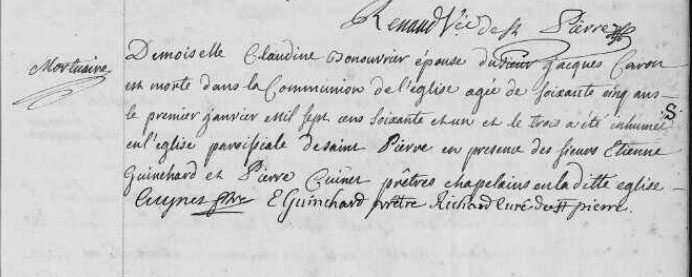 Renaud Vic de St Pierre
Mortuaire
Demoiselle Claudine Bonouvrier épouse du sieur Jacques Caron
est morte dans la Communion de l'église agée de soixante cinq ans
le premier janvier mil sept cens soixante et un et le trois a été inhumée
en l'église paroissiale de saint Pierre en presence des sieurs Etienne
Guinchard et Pierre Cuinet prêtres chapelains en la ditte eglise
E Guinchard prêtre Richard curé de St pierre.